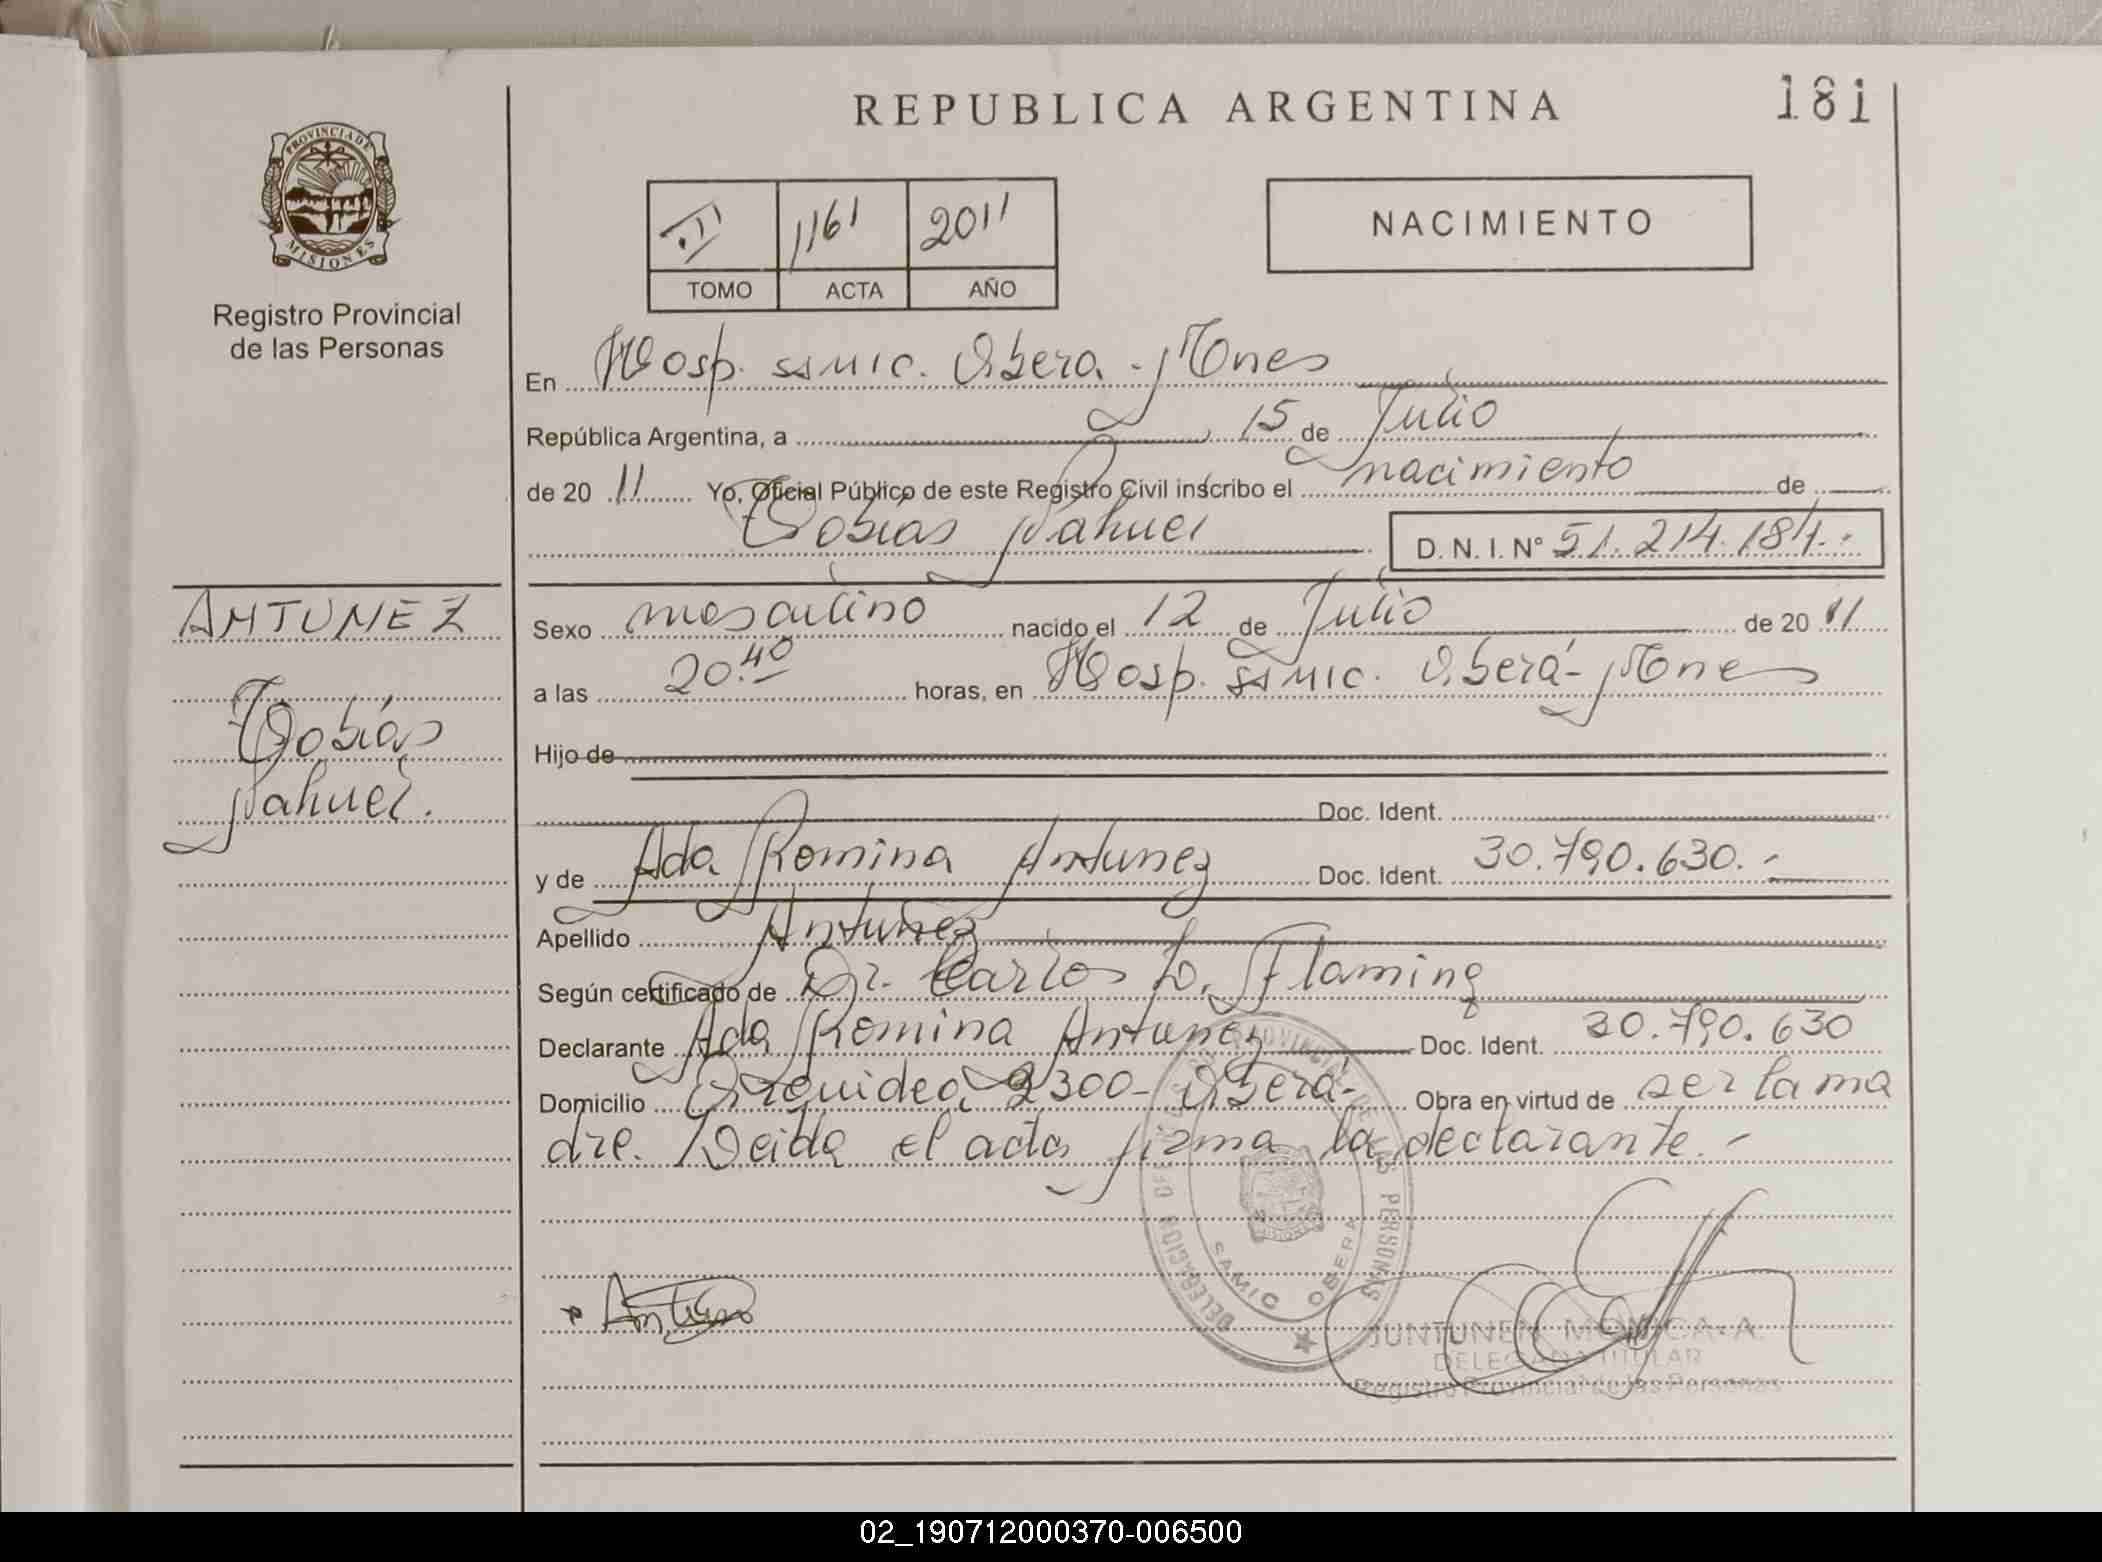 REPUBLICA ARGENTINA
181
PROVINCIA DE
MISIONES
Registro Provincial
de las Personas
II 1161 2011
TOMO ACTA AÑO
NACIMIENTO
En Hosp. SAMIC. Oberá - Mnes
República Argentina, a 15 de Julio
de 2011 Yo, Oficial Público de este Registro Civil inscribo el nacimiento de
Tobías Nahuel D. N. I. N° 51.214.184.-
ANTUNEZ
Tobías
Nahuel.
Sexo masculino nacido el 12 de Julio de 2011
a las 20.40 horas, en Hosp. SAMIC. Oberá - Mnes
Hijo de
Doc. Ident.
y de Ada Romina Antunez Doc. Ident. 30.790.630.-
Apellido Antunez
Según certificado de Dr. Carlos D. Flaming
Declarante Ada Romina Antunez Doc. Ident. 30.790.630
Domicilio Orquidea 2300 - Oberá - Obra en virtud de ser la ma
dre. Leida el acta firma la declarante.-
SAMIC OBERA
JUNTUNEN MONICA A.
DELEGADA TITULAR
Registro Provincial de las Personas
02_190712000370-006500